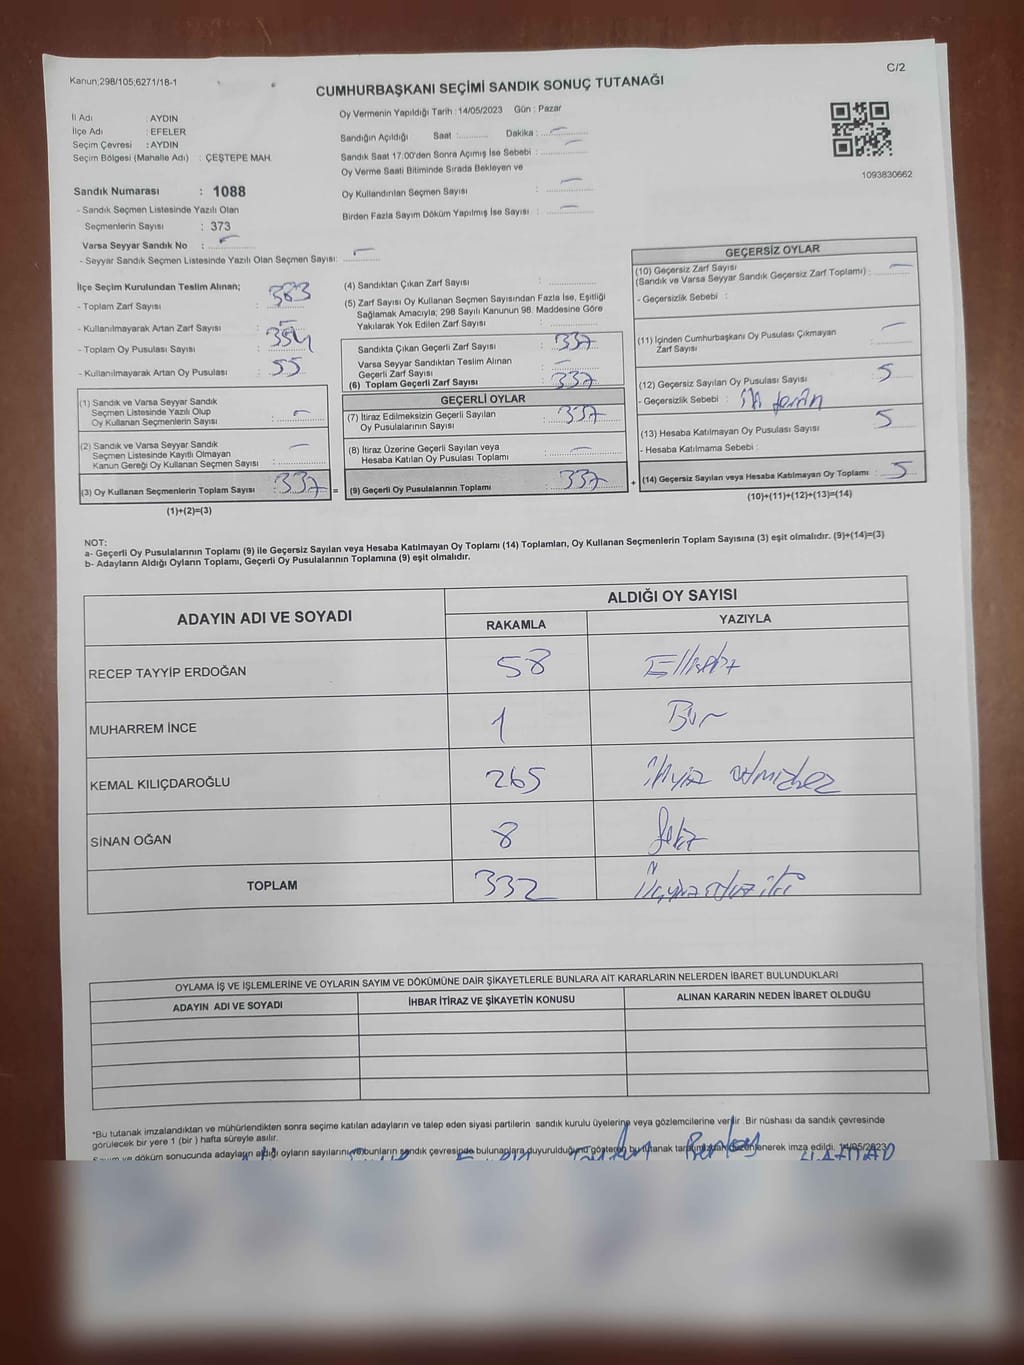 Kanun;298/105,6271/18-1
C/2
CUMHURBAŞKANI SEÇİMİ SANDIK SONUÇ TUTANAĞI
İl Adı AYDIN
İlçe Adı : EFELER
Seçim Çevresi : AYDIN
Seçim Bölgesi (Mahalle Adı) : ÇEŞTEPE MAH.
Sandık Numarası : 1088
- Sandık Seçmen Listesinde Yazılı Olan
Seçmenlerin Sayısı : 373
Varsa Seyyar Sandık No :
- Seyyar Sandık Seçmen Listesinde Yazılı Olan Seçmen Sayısı:
Oy Vermenin Yapıldığı Tarih : 14/05/2023 Gün : Pazar
Sandığın Açıldığı Saat : Dakika :
Sandık Saat 17:00'den Sonra Açımış İse Sebebi :
Oy Verme Saati Bitiminde Sırada Bekleyen ve
Oy Kullandırılan Seçmen Sayısı :
Birden Fazla Sayım Döküm Yapılmış İse Sayısı :
1093830662
İlçe Seçim Kurulundan Teslim Alınan;
- Toplam Zarf Sayısı : 383
- Kullanılmayarak Artan Zarf Sayısı :
- Toplam Oy Pusulası Sayısı : 354
- Kullanılmayarak Artan Oy Pusulası : 55
(1) Sandık ve Varsa Seyyar Sandık
Seçmen Listesinde Yazılı Olup
Oy Kullanan Seçmenlerin Sayısı :
(2) Sandık ve Varsa Seyyar Sandık
Seçmen Listesinde Kayıtlı Olmayan
Kanun Gereği Oy Kullanan Seçmen Sayısı :
(3) Oy Kullanan Seçmenlerin Toplam Sayısı : 337 =
(1)+(2)=(3)
(4) Sandıktan Çıkan Zarf Sayısı :
(5) Zarf Sayısı Oy Kullanan Seçmen Sayısından Fazla İse, Eşitliği
Sağlamak Amacıyla; 298 Sayılı Kanunun 98. Maddesine Göre
Yakılarak Yok Edilen Zarf Sayısı :
Sandıkta Çıkan Geçerli Zarf Sayısı : 337
Varsa Seyyar Sandıktan Teslim Alınan
Geçerli Zarf Sayısı :
(6) Toplam Geçerli Zarf Sayısı : 337
GEÇERLİ OYLAR
(7) İtiraz Edilmeksizin Geçerli Sayılan
Oy Pusulalarının Sayısı : 337
(8) İtiraz Üzerine Geçerli Sayılan veya
Hesaba Katılan Oy Pusulası Toplamı :
(9) Geçerli Oy Pusulalarının Toplamı : 337 +
GEÇERSİZ OYLAR
(10) Geçersiz Zarf Sayısı
(Sandık ve Varsa Seyyar Sandık Geçersiz Zarf Toplamı) :
- Geçersizlik Sebebi :
(11) İçinden Cumhurbaşkanı Oy Pusulası Çıkmayan
Zarf Sayısı :
(12) Geçersiz Sayılan Oy Pusulası Sayısı : 5
- Geçersizlik Sebebi :
(13) Hesaba Katılmayan Oy Pusulası Sayısı : 5
- Hesaba Katılmama Sebebi :
(14) Geçersiz Sayılan veya Hesaba Katılmayan Oy Toplamı : 5
(10)+(11)+(12)+(13)=(14)
NOT:
a- Geçerli Oy Pusulalarının Toplamı (9) ile Geçersiz Sayılan veya Hesaba Katılmayan Oy Toplamı (14) Toplamları, Oy Kullanan Seçmenlerin Toplam Sayısına (3) eşit olmalıdır. (9)+(14)=(3)
b- Adayların Aldığı Oyların Toplamı, Geçerli Oy Pusulalarının Toplamına (9) eşit olmalıdır.
ADAYIN ADI VE SOYADI
ALDIĞI OY SAYISI
RAKAMLA YAZIYLA
RECEP TAYYİP ERDOĞAN 58 Ellisekiz
MUHARREM İNCE 1 Bir
KEMAL KILIÇDAROĞLU 265 ikiyüz altmışbeş
SİNAN OĞAN 8 Sekiz
TOPLAM 332 Üçyüzotuziki
OYLAMA İŞ VE İŞLEMLERİNE VE OYLARIN SAYIM VE DÖKÜMÜNE DAİR ŞİKAYETLERLE BUNLARA AİT KARARLARIN NELERDEN İBARET BULUNDUKLARI
ADAYIN ADI VE SOYADI İHBAR İTİRAZ VE ŞİKAYETİN KONUSU ALINAN KARARIN NEDEN İBARET OLDUĞU
*Bu tutanak imzalandıktan ve mühürlendikten sonra seçime katılan adayların ve talep eden siyasi partilerin sandık kurulu üyelerine veya gözlemcilerine verilir. Bir nüshası da sandık çevresinde
görülecek bir yere 1 (bir) hafta süreyle asılır.
Sayım ve döküm sonucunda adayların aldığı oyların sayılarını ve bunların sandık çevresinde bulunanlara duyurulduğunu gösteren bu tutanak tarafımızdan düzenlenerek imza edildi. 14/05/2023